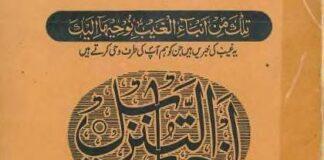 تِلْكَ مِنْ اَنْبَآءِ الْغَيْبِ نُوْحِيْهَا اِلَيْكَ
یہ غیب کی خبریں ہیں جن کو ہم آپ کی طرف وحی کرتے ہیں
التنزیل